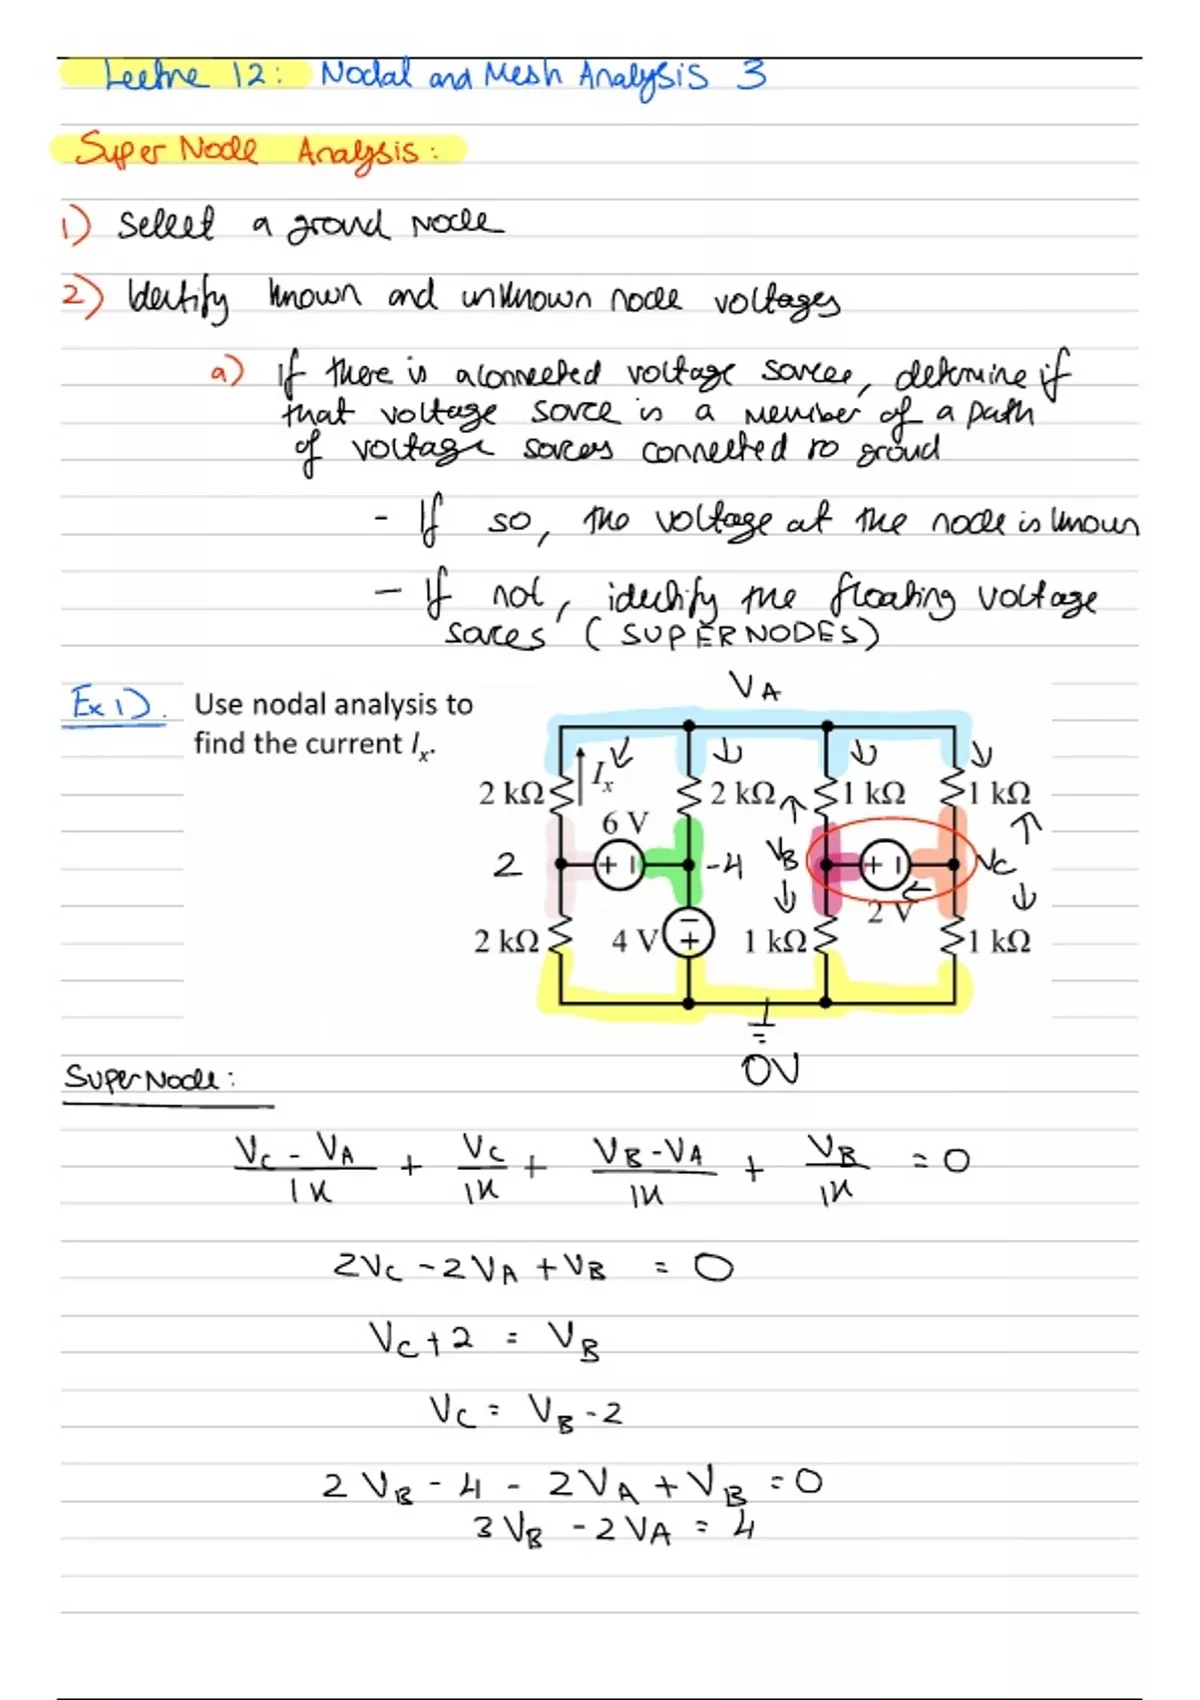 Lecture 12: Nodal and Mesh Analysis 3
Super Node Analysis:
1) Select a ground Node
2) Identify known and unknown node voltages
a) if there is a connected voltage sources, determine if
that voltage source is a member of a path
of voltage sources connected to ground
- If so, the voltage at the node is known
- If not, identify the floating voltage
sources (SUPERNODES)
Ex 1). Use nodal analysis to
find the current Ix.
VA
2 kΩ Ix 2 kΩ 1 kΩ 1 kΩ
6 V
2 + - -4 VB + - VC
2 V
2 kΩ 4 V - + 1 kΩ 1 kΩ
0V
SuperNode:
VC - VA / 1K + VC / 1K + VB - VA / 1K + VB / 1K = 0
2VC - 2VA + VB = 0
VC + 2 = VB
VC = VB - 2
2VB - 4 - 2VA + VB = 0
3VB - 2VA = 4